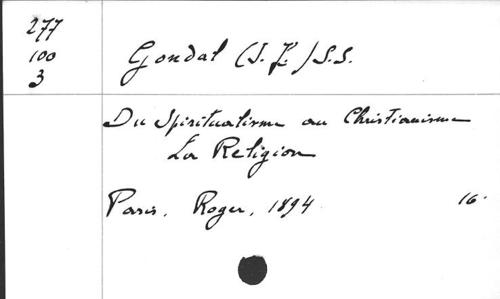 277
100
3
Gondal (I. L.) S.S.
Du Spiritualisme au Christianisme
La Religion
Paris, Roger, 1894 16°